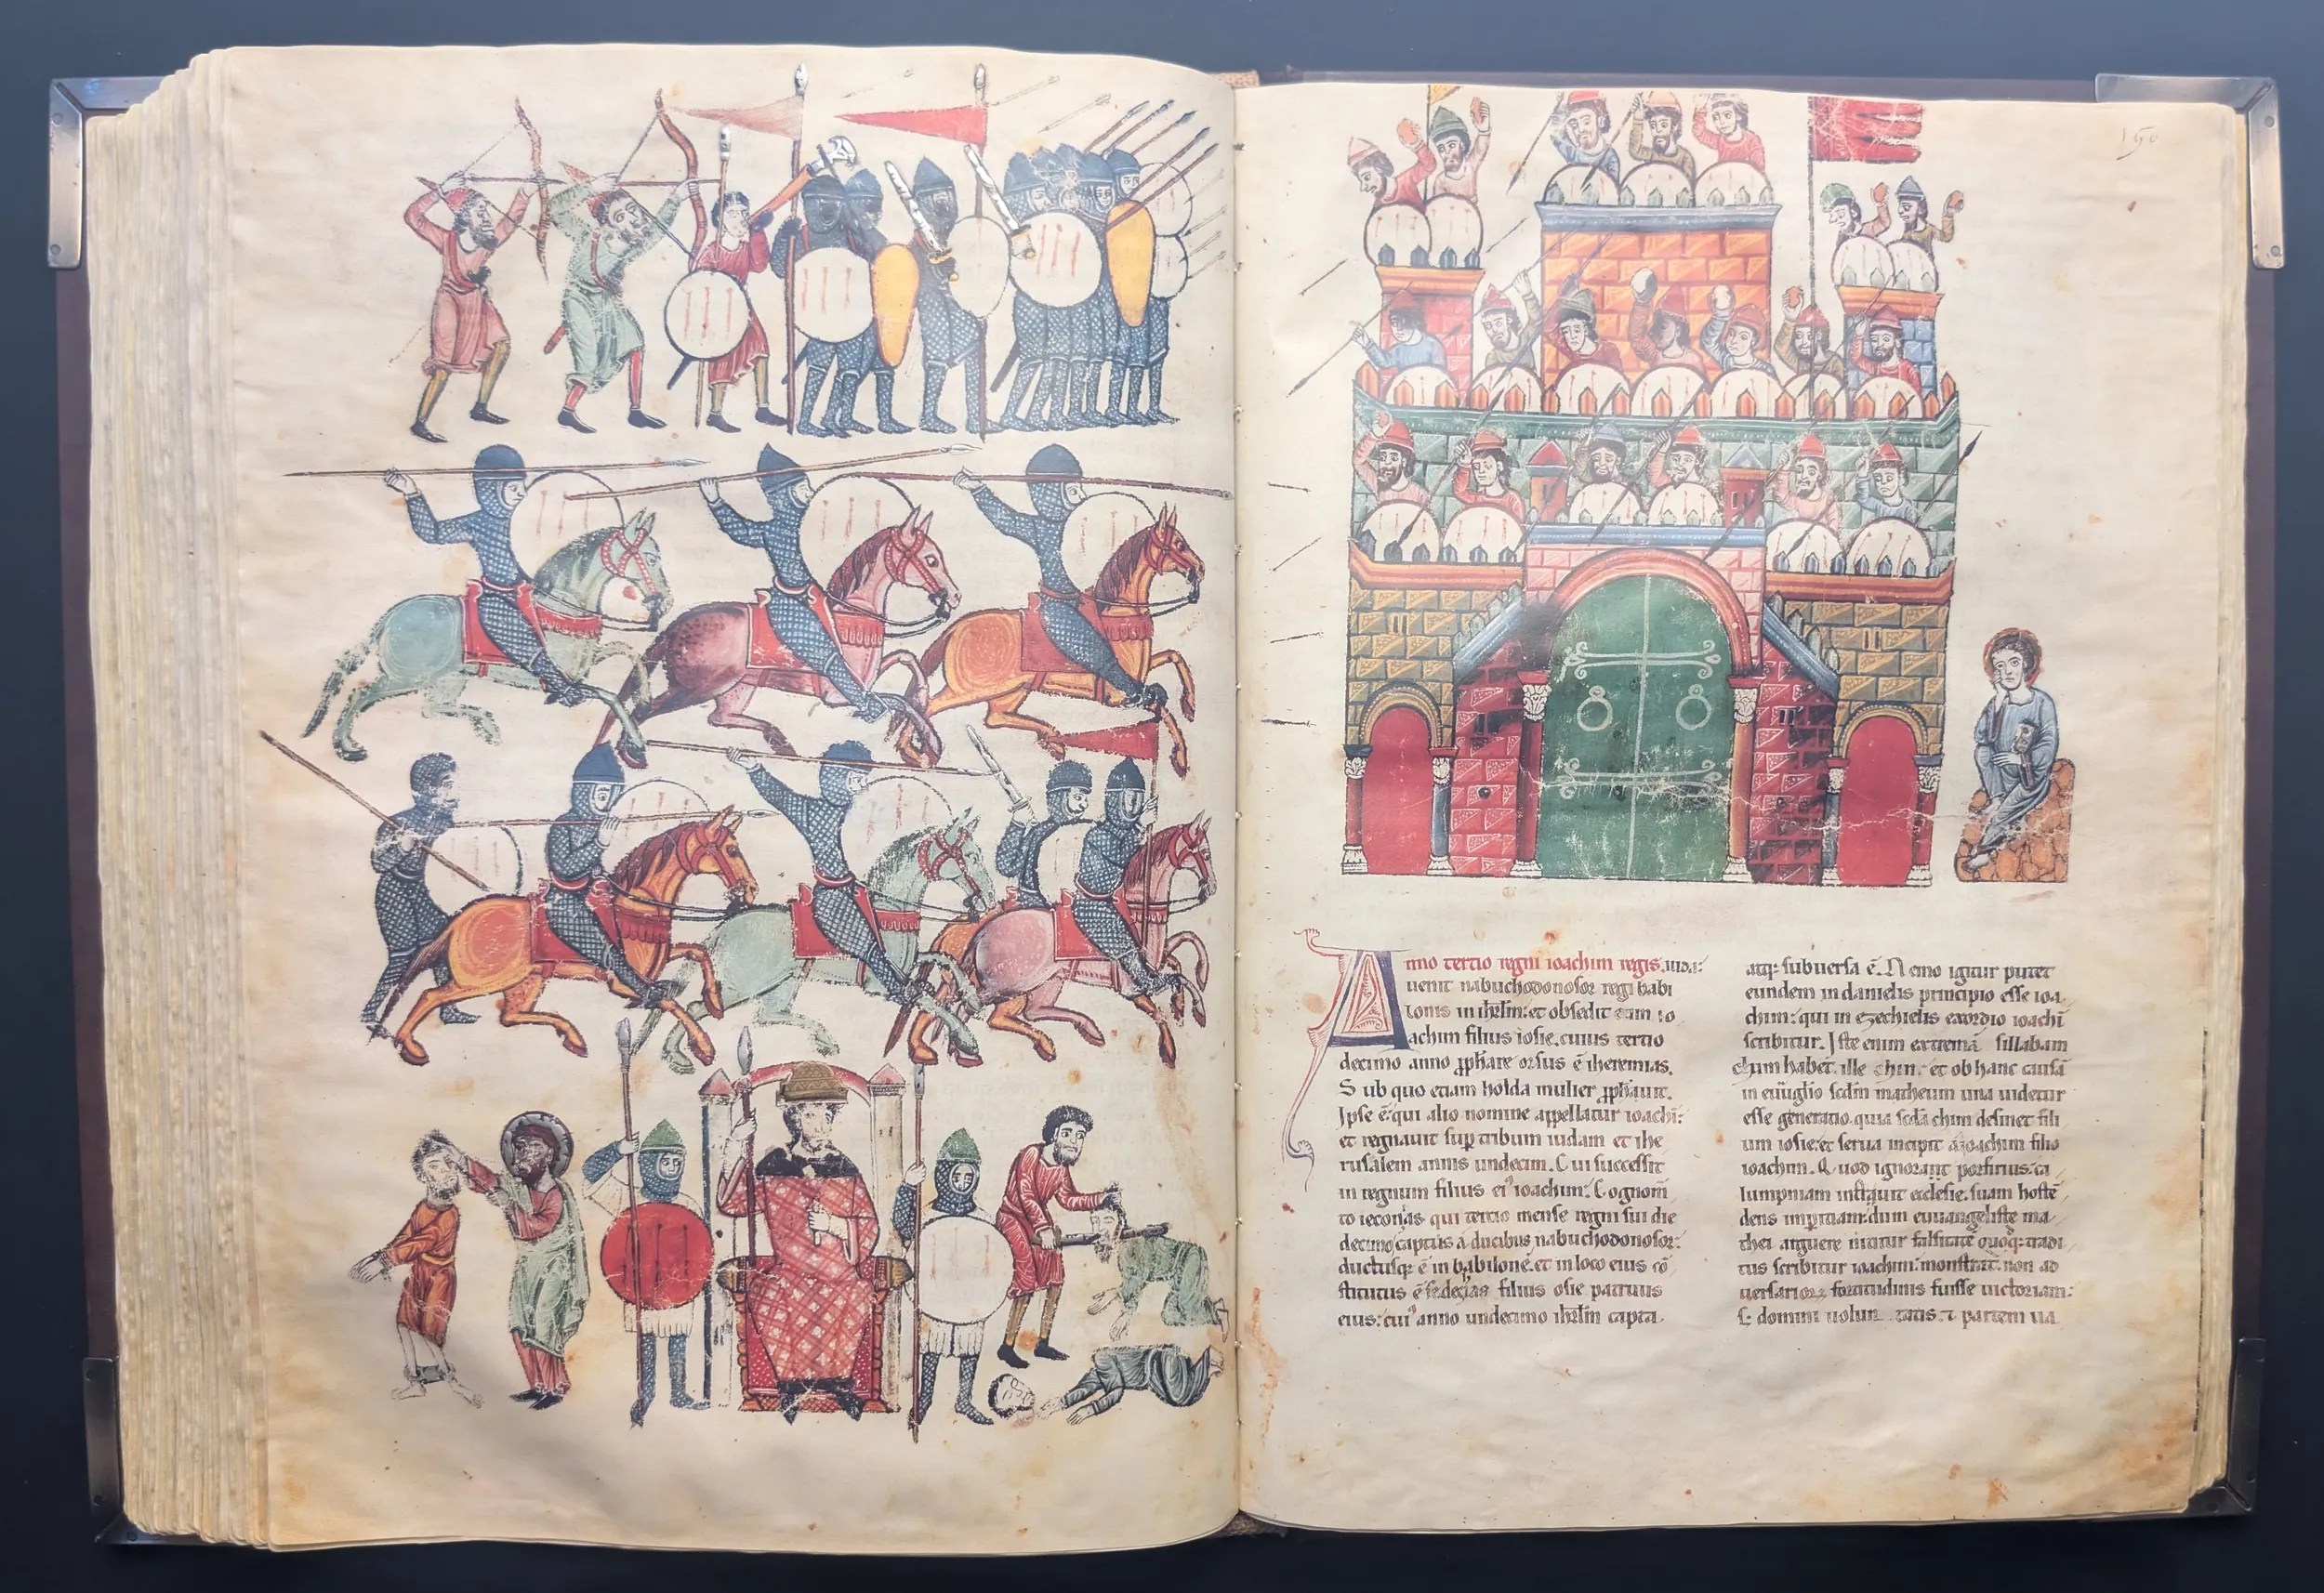 150
Anno tertio regni ioachim regis iuda:
uenit nabuchodonosor regi babi
lonis in ihrlm: et obsedit eam io
achim filius iosie. cuius tertio
decimo anno ꝓphare orsus ē iheremias.
Sub quo etiam holda mulier ꝓphauit.
Ipse ē: qui alio nomine appellatur ioachī:
et regnauit sup tribum iudam et ihe
rusalem annis undecim. Cui successit
in regnum filius ei⁹ ioachim: Cognom̄
to ieconias qui tertio mense regni sui die
decimo captus a ducibus nabuchodonosor:
ductusqȝ ē in babilonē. et in loco eius cō
stitutus ē sedecias filius osie patruus
eius: cui⁹ anno undecimo ihrlm capta
atqȝ subuersa ē. Nemo igitur putet
eundem in danielis principio esse ioa
chim: qui in ezechielis exordio ioachī
scribitur. Iste enim extremā sillabam
chim habet. ille chin. et ob hanc causā
in euūglio scdm matheum una uidetur
esse generatio. quia scda chim desinet fili
um iosie: et serua incipit a ioachim filio
ioachim. Quod ignorant porfirius: ca
lumpniam instauit ecclesie. suam hoste
dens imperitiam: dum euuangeliste ma
thei arguere nititur falsitatē quoqȝ: tradi
tus scribitur ioachim: monstrat. non ad
uersarioꝝ fortitudinis fuisse uictoriam:
s: domini uolun tatis. ⁊ partem ua